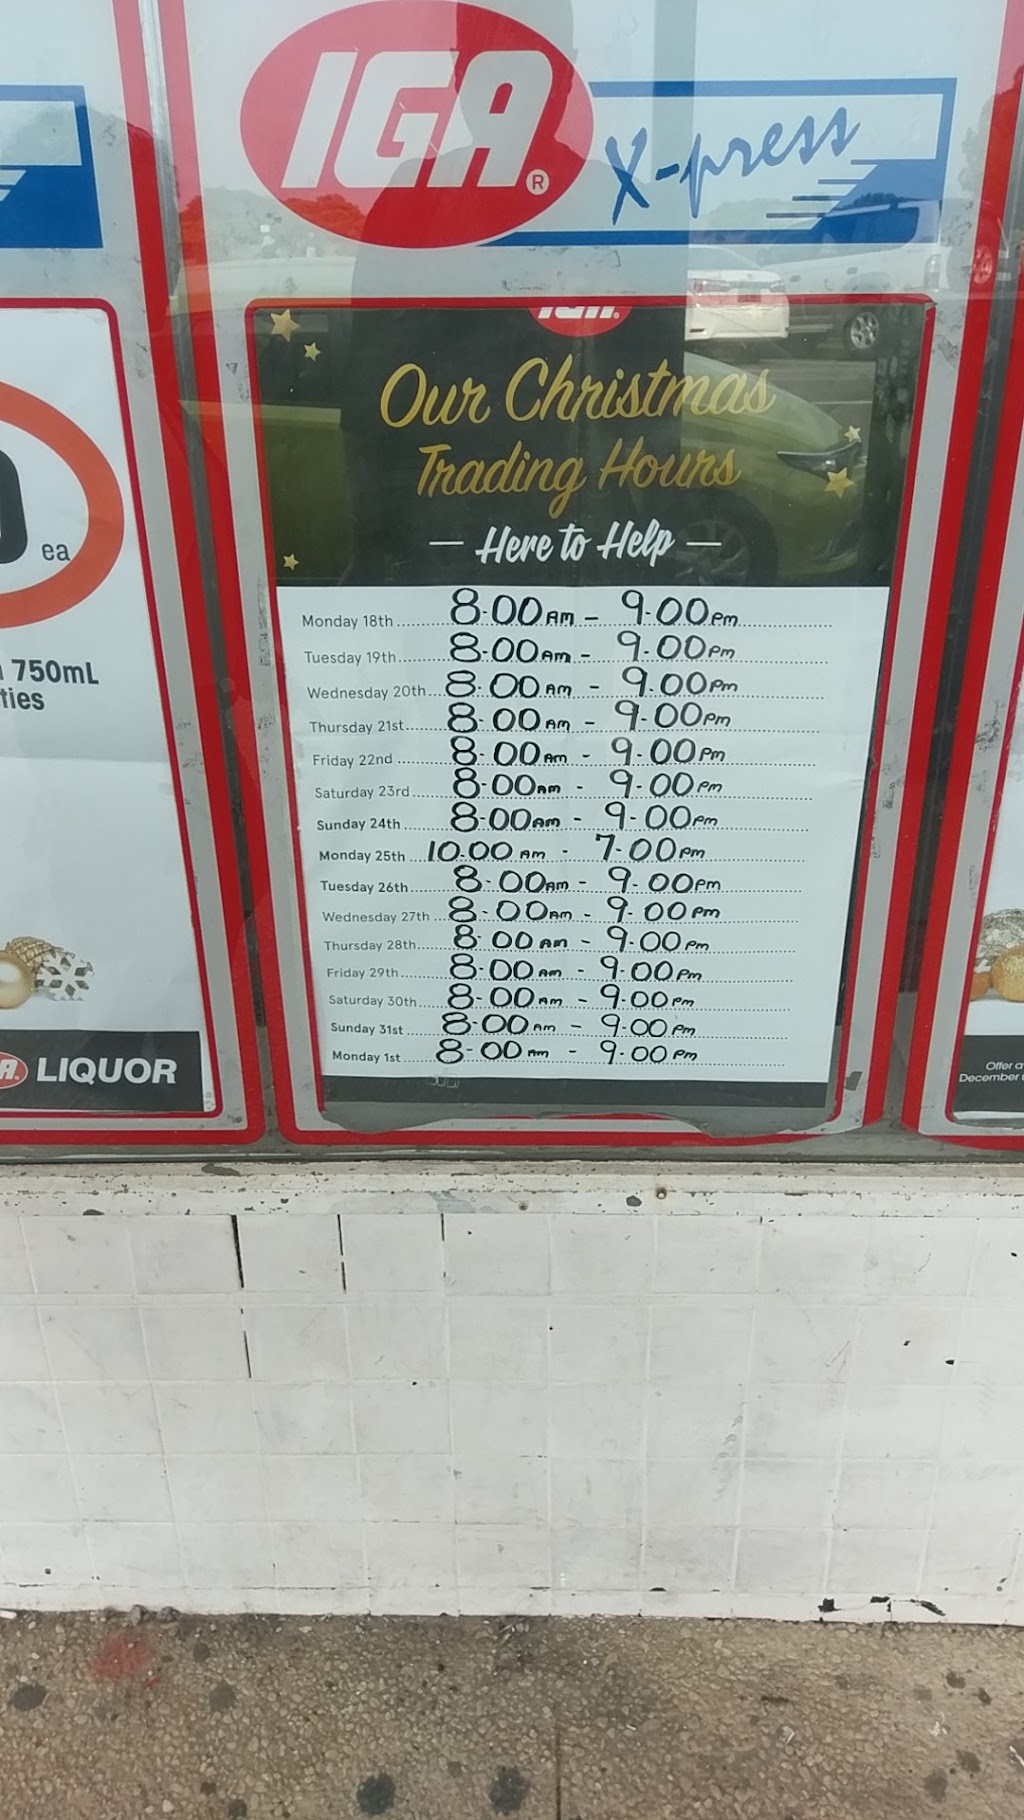 IGA®
X-press
IGA®
Our Christmas
Trading Hours
— Here to Help —
Monday 18th 8-00AM - 9-00PM
Tuesday 19th 8-00AM - 9-00PM
Wednesday 20th 8-00AM - 9-00PM
Thursday 21st 8-00AM - 9-00PM
Friday 22nd 8-00AM - 9-00PM
Saturday 23rd 8-00AM - 9-00PM
Sunday 24th 8-00AM - 9-00PM
Monday 25th 10.00AM - 7-00PM
Tuesday 26th 8-00AM - 9-00PM
Wednesday 27th 8-00AM - 9-00PM
Thursday 28th 8-00AM - 9-00PM
Friday 29th 8-00AM - 9-00PM
Saturday 30th 8-00AM - 9-00PM
Sunday 31st 8-00AM - 9-00PM
Monday 1st 8-00AM - 9-00PM
ea
750mL
LIQUOR
Offer
December